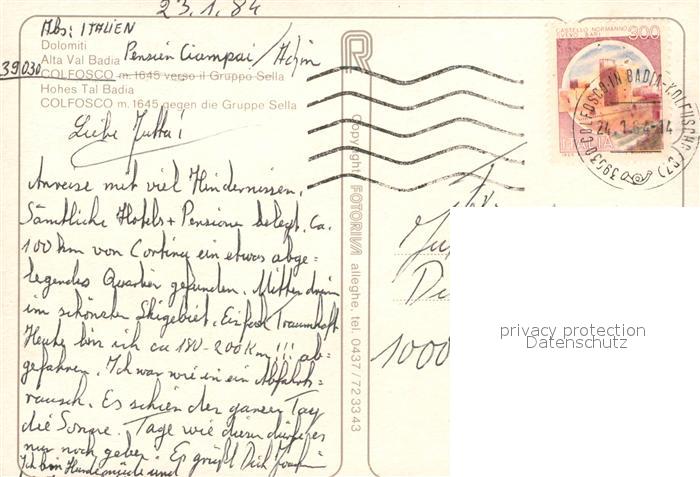 23.1.84
Abs: ITALIEN
Dolomiti
Alta Val Badia Pension Ciampai /
39030
COLFOSCO m. 1645 verso il Gruppo Sella
Hohes Tal Badia
COLFOSCO m. 1645 gegen die Gruppe Sella
Liebe Jutta!
Anreise mit viel Hindernissen.
Sämtliche Hotels + Pensione belegt. Ca.
100 km von Cortina ein etwas abge=
legendes Quartier gefunden. Mitten drin
im schönsten Skigebiet. Einfach Traumhaft
Heute bin ich ca 180-200 Km!!! ab=
gefahren. Ich war wie in ein Abfahrts=
rausch. Es schien der ganzen Tag
die Sonne. Tage wie diesen dürfte es
nur noch geben. Es grüßt Dich Joachim
Ich bin Hundemüde und
R
Copyright FOTORIVA alleghe, tel. 0437/723343
CASTELLO NORMANNO
300
ITALIA
39030 COLFOSCO-IN BADIA-KOLFUSCHG (BZ)
24.1.84-14
1000
privacy protection
Datenschutz